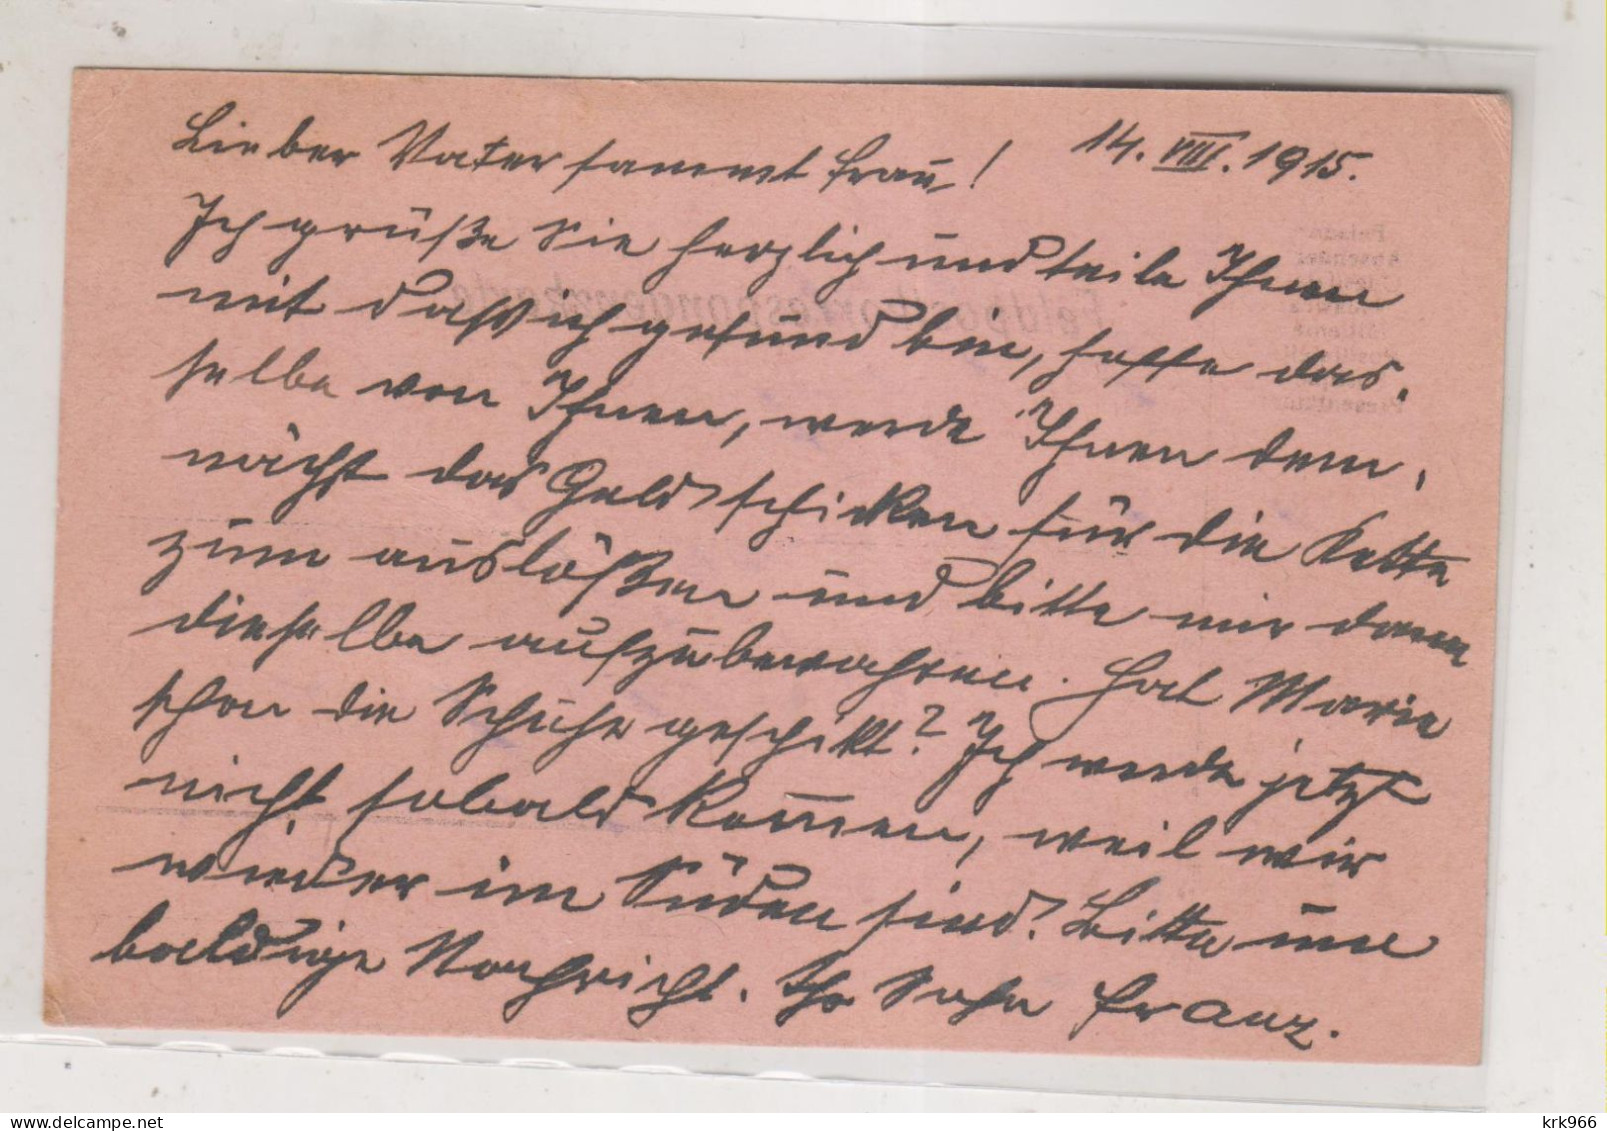 14. VIII. 1915.
Lieber Vater sammt Frau!
Ich grüße Sie herzlich und teile Ihnen
mit daß ich gesund bin, hoffe das,
selbe von Ihnen, werde Ihnen dem,
nächst das Geld schicken für die Kette
zum auslößen und bitte mir dann
dieselbe aufzubewahren. Hat Marie
schon die Schuhe geschikt? Ich werde jetzt
nicht sobald kom̅en, weil wir
wieder im Süden sind. Bitte um
baldige Nachricht. Ihr Sohn Franz.
Feldpostkorrespondenzkarte
krk966